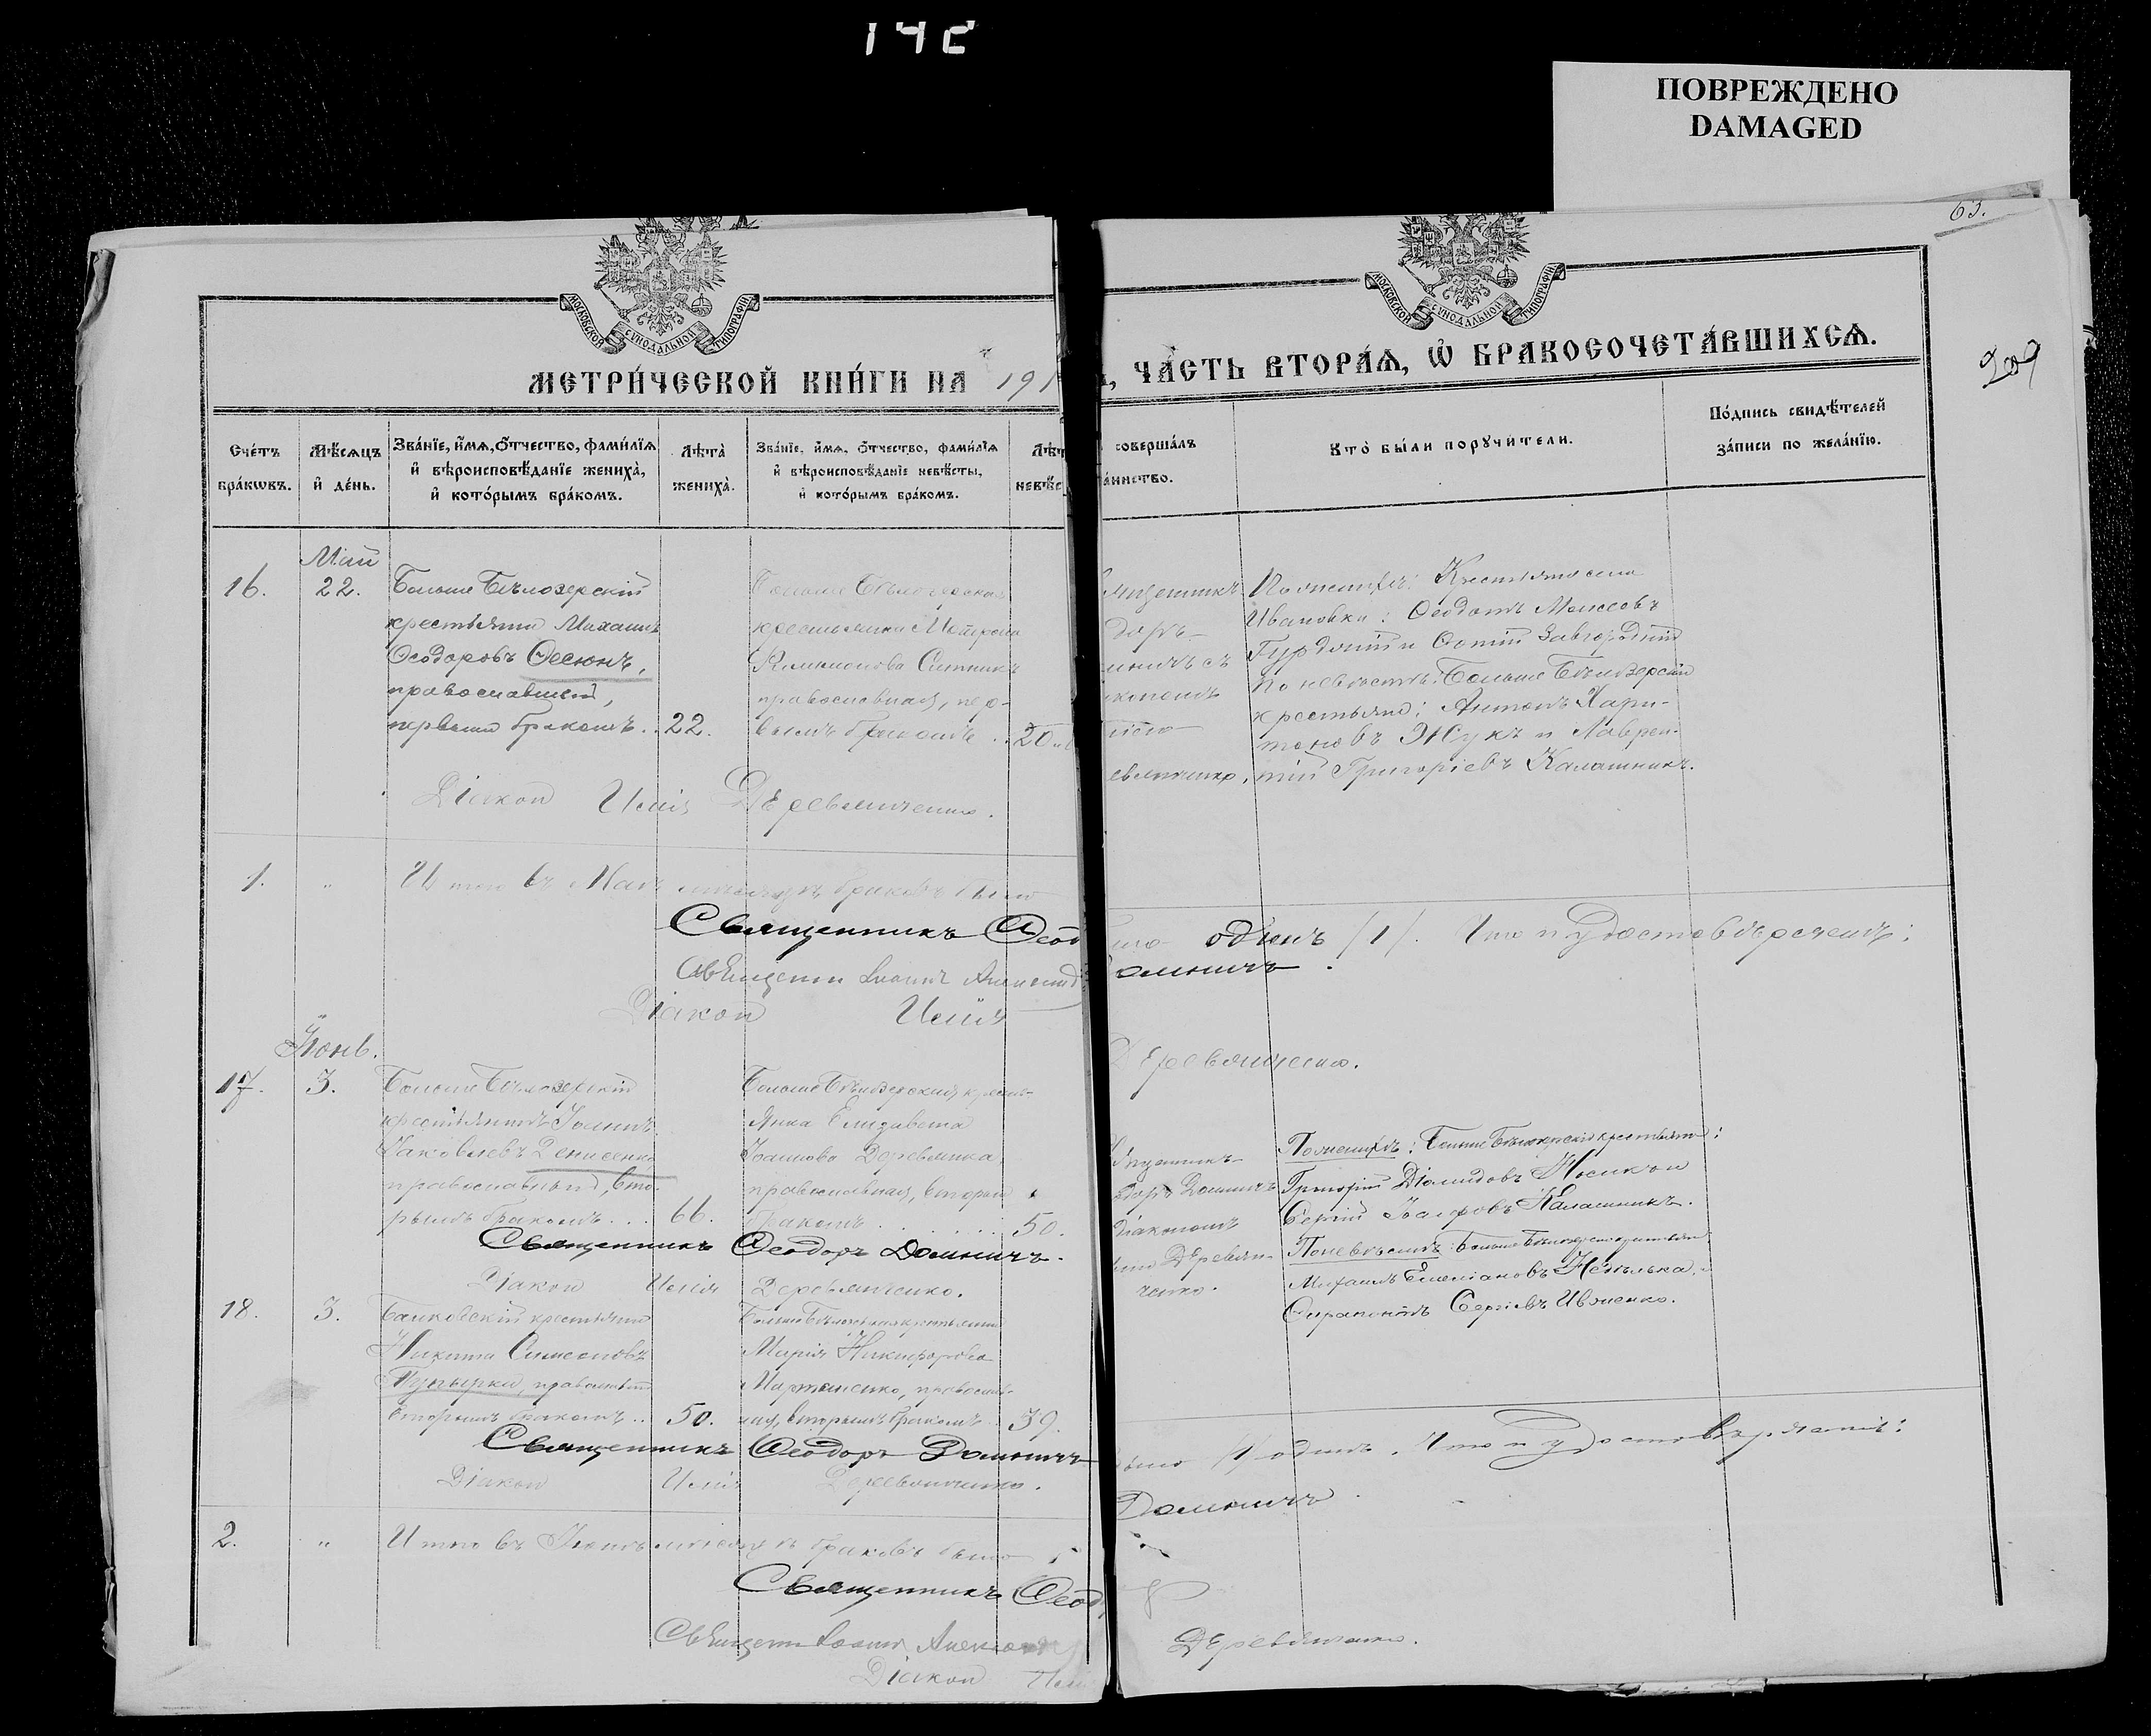 142
ПОВРЕЖДЕНО
DAMAGED
63.
209
МОСКОВСКОЙ СУНОДАЛЬНОЙ ТИПОГРАФІИ
МОСКОВСКОЙ СУНОДАЛЬНОЙ ТИПОГРАФІИ
МЕТРИ́ЧЕСКОЙ КНИ́ГИ НА 191
, ЧА́СТЬ ВТОРА́Ѧ, Ѽ БРАКОСОЧЕТА́ВШИХСѦ.
Сче́тъ бра́кѡвъ.
Мѣ́сѧцъ и҆ де́нь.
Зва́нїе, и҆́мѧ, ѻ҆́тчество, фами́лїѧ и҆ вѣроисповѣ́данїе жениха̀, и҆ кото́рымъ бра́комъ.
Лѣ́та̀ жениха̀.
Зва́нїе, и҆́мѧ, ѻ҆́тчество, фами́лїѧ и҆ вѣроисповѣ́данїе невѣ́сты, и҆ кото́рымъ бра́комъ.
Лѣт
невѣс
соверша́лъ
а́инство.
Кто̀ бы́ли порꙋчи́тели.
По́дпись свидѣ́телей за́писи по жела́нїю.
Май
16. 22.
Больше Бѣлозерскій
крестьянин Михаилъ
Ѳеодоровъ Ѳесюнъ,
православный,
первым бракомъ. . 22.
Больше Бѣлозерская
крестьянка Матрона
Филимонова Ситникъ
православная, пер-
вымъ бракомъ . . 20
вященникъ
доръ
иничъ съ
іакономъ
евянченко.
По женихѣ: Крестьяне села
Ивановки: Ѳеодотъ Моисеовъ
и Фотій Завгородній
по невѣстѣ: Больше Бѣлозерскіе
крестьяне: Антонъ Хари-
тоновъ Жукъ и Лаврен-
тій Григоріевъ Калашникъ.
Діакон Илія Деревянченко.
1. "
Итого въ Маѣ мѣсяцѣ браковъ было
одинъ /1/. Что и удостовѣряемъ:
Священникъ Ѳеод
Домничъ.
Священ Іоаннъ
Діакон Илія
Деревянченко.
Іюнь.
17. 3.
Больше Бѣлозерскій
крестьянинъ Іоаннъ
Іаковлевъ Денисенко,
православный, вто-
рымъ бракомъ . . . 66.
Больше Бѣлозерская кресть-
янка Елизавета
Іоаннова Деревянка,
православная, вторым
бракомъ . . . . . . 50.
вященникъ
доръ Домничъ
діакономъ
Деревян-
ченко.
По женихѣ: Больше Бѣлозерскіе крестьяне:
Григорій Діомидовъ Носик и
Сергій Калашникъ.
По невѣстѣ: Больше Бѣлозерскіе крестьяне
Михаилъ Емеліановъ Недѣлька и
Серапіонъ Сергіевъ Ивженко.
Священникъ Ѳеодоръ Домничъ.
Діакон Илія Деревянченко.
18. 3.
Балковскій крестьянин
Никита Симеоновъ
Пупырка, православный
вторымъ бракомъ . . 50.
Больше Бѣлозерская крестьянка
Марія Никифорова
Мартыненко, православ-
ная, вторымъ бракомъ . 39.
Священникъ Ѳеодоръ Домничъ
Діакон Илія Деревянченко.
2. "
Итого въ Іюнѣ мѣсяцѣ браковъ было
одинъ. Что и удостовѣряемъ:
Священникъ Ѳеод
Домничъ
Священ Іоаннъ
Діакон Илія
Деревянченко.